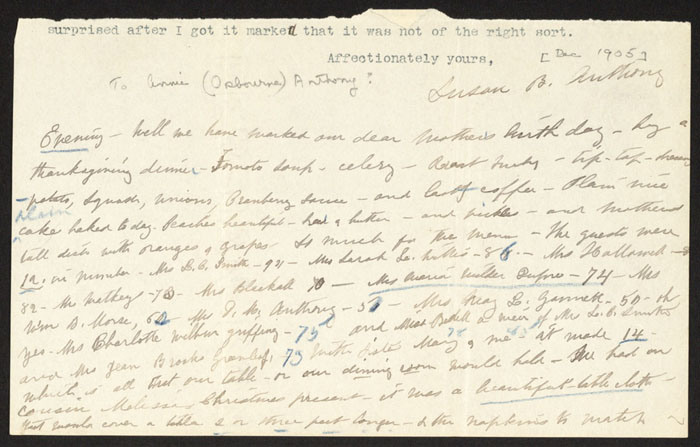 surprised after I got it marked that it was not of the right sort.
Affectionately yours,
[Dec 1905]
To Annie (Osbourne) Anthony?
Susan B. Anthony
Evening - Well we have marked our dear Mothers birth day - by a
thanksgiving dinner - Tomato soup - celery - Roast turkey - tip-top-dressing
- potato, Squash, onions, Cranberry Sauce - and last coffee - Plain nice
plain
cake baked to day. Peaches beautiful - bread & butter - and pickles - and mothers
tall dish with oranges & grapes So much for the menu - The guests were
12. in number - Mrs L. C. Smith - 94 - Mrs Sarah L. Willis - 86 - Mrs Hallowell -
82 - Mr - 73 - Mrs Blackall 70 - Mrs Maria Wilder - 74 - Mrs
Wm B. Morse, 62 Mrs D. M. Anthony - 50 - Mrs Mary L. Gannett - 50 - oh
yes - Mrs Charlotte Wilbur Griffing - 75 and Miss a niece of Mrs L. C. Smith
and Mrs Jean Brooks Greenleaf; 73 with sister Mary 78 & me 85 - it made 14 -
which is all that our table - or our dining room would hold - We had on
Cousin Melissa's Christmas present - it was a beautiful table cloth -
just would cover a table 2 or three feet longer - & the napkins to match